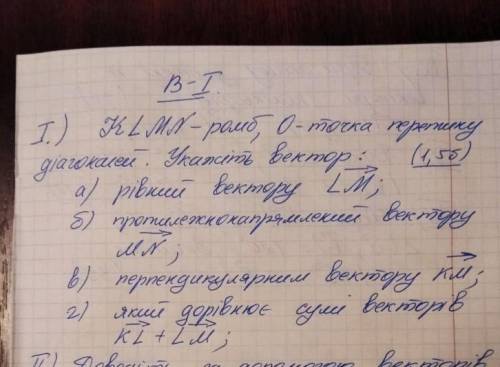 В-I.
I.) KLMN-ромб, O-точка перетину
діагоналей. Укажіть вектор: (1,5б)
а) рівний вектору LM;
б) протилежнонапрямлений вектору
MN;
в) перпендикулярним вектору KM;
г) який дорівнює сумі векторів
KL + LM;
II) Доведіть за допомогою векторів